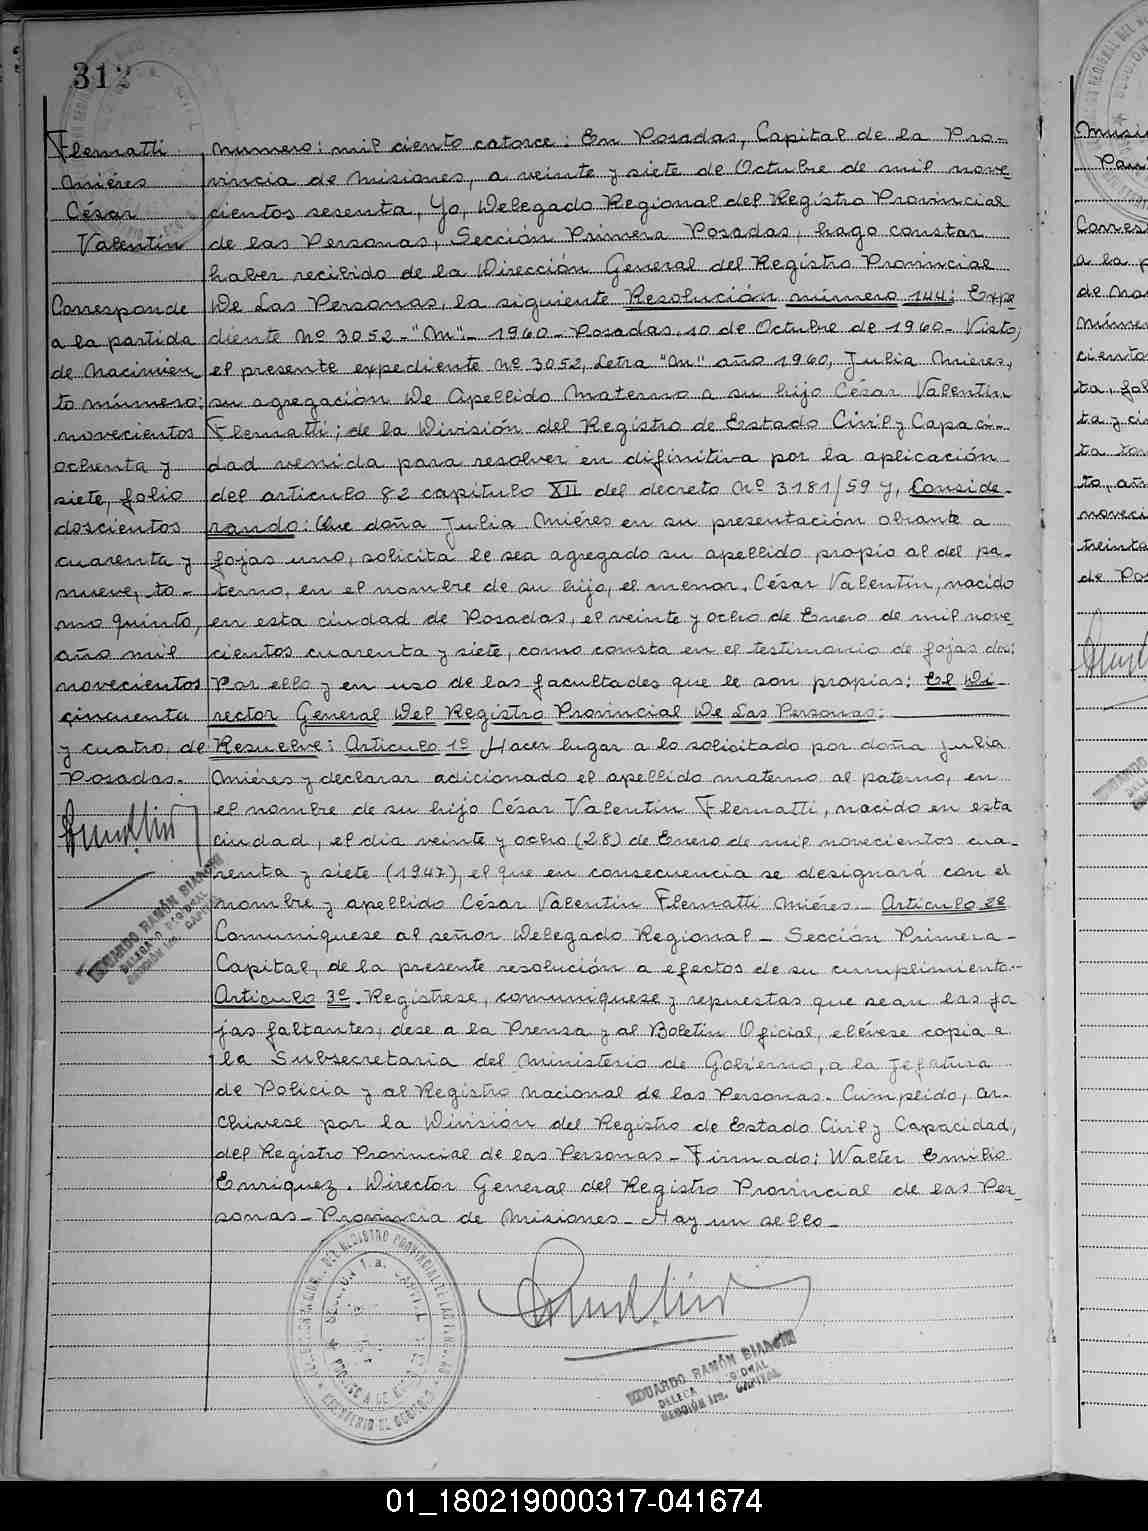 312
Flematti
Miéres
César
Valentin
Corresponde
a la partida
de Nacimien
to número:
novecientos
ochenta y
siete, folio
doscientos
cuarenta y
nueve, to-
mo quinto,
año mil
novecientos
cincuenta
y cuatro, de
Posadas.
EDUARDO RAMÓN BIANCHI
DELEGADO REGIONAL
SECCIÓN 1ra. CAPITAL
Numero: mil ciento catorce: En Posadas, Capital de la Pro-
vincia de Misiones, a veinte y siete de Octubre de mil nove-
cientos sesenta, Yo, Delegado Regional del Registro Provincial
de las Personas, Sección Primera Posadas, hago constar
haber recibido de la Dirección General del Registro Provincial
De Las Personas, la siguiente Resolución número 144: Expe-
diente Nº 3052-"M"- 1960- Posadas, 10 de Octubre de 1960- Visto,
el presente expediente Nº 3052, Letra "M" año 1960, Julia Mieres,
su agregación De Apellido Materno a su hijo César Valentin
Flematti; de la División del Registro de Estado Civil y Capaci-
dad venida para resolver en difinitiva por la aplicación
del articulo 82 capitulo XII del decreto Nº 3181/59 y, Conside-
rando: Que doña Julia Miéres en su presentación obrante a
fojas uno, solicita le sea agregado su apellido propio al del pa-
terno, en el nombre de su hijo, el menor, César Valentin, nacido
en esta ciudad de Posadas, el veinte y ocho de Enero de mil nove-
cientos cuarenta y siete, como consta en el testimonio de fojas dos;
Por ello y en uso de las facultades que le son propias: El Di-
rector General Del Registro Provincial De Las Personas:
Resuelve: Articulo 1º Hacer lugar a lo solicitado por doña Julia
Miéres y declarar adicionado el apellido materno al paterno, en
el nombre de su hijo César Valentin Flematti, nacido en esta
ciudad, el dia veinte y ocho (28) de Enero de mil novecientos cua-
renta y siete (1947), el que en consecuencia se designará con el
nombre y apellido César Valentin Flematti Miéres. Articulo 2º
Comuniquese al señor Delegado Regional - Sección Primera-
Capital, de la presente resolución a efectos de su cumplimiento.-
Articulo 3º. Registrese, comuniquese y repuestas que sean las fo
jas faltantes, dese a la Prensa y al Boletin Oficial, elévese copia a
la Subsecretaria del Ministerio de Gobierno, a la Jefatura
de Policia y al Registro Nacional de las Personas. Cumplido, ar-
chivese por la División del Registro de Estado Civil y Capacidad,
del Registro Provincial de las Personas - Firmado: Walter Emilio
Enriquez. Director General del Registro Provincial de las Per-
sonas - Provincia de Misiones - Hay un sello -
EDUARDO RAMÓN BIANCHI
DELEGADO REGIONAL
SECCIÓN 1ra. CAPITAL
a la
de Na
ciento
ta y
noveci
treinta
01_180219000317-041674